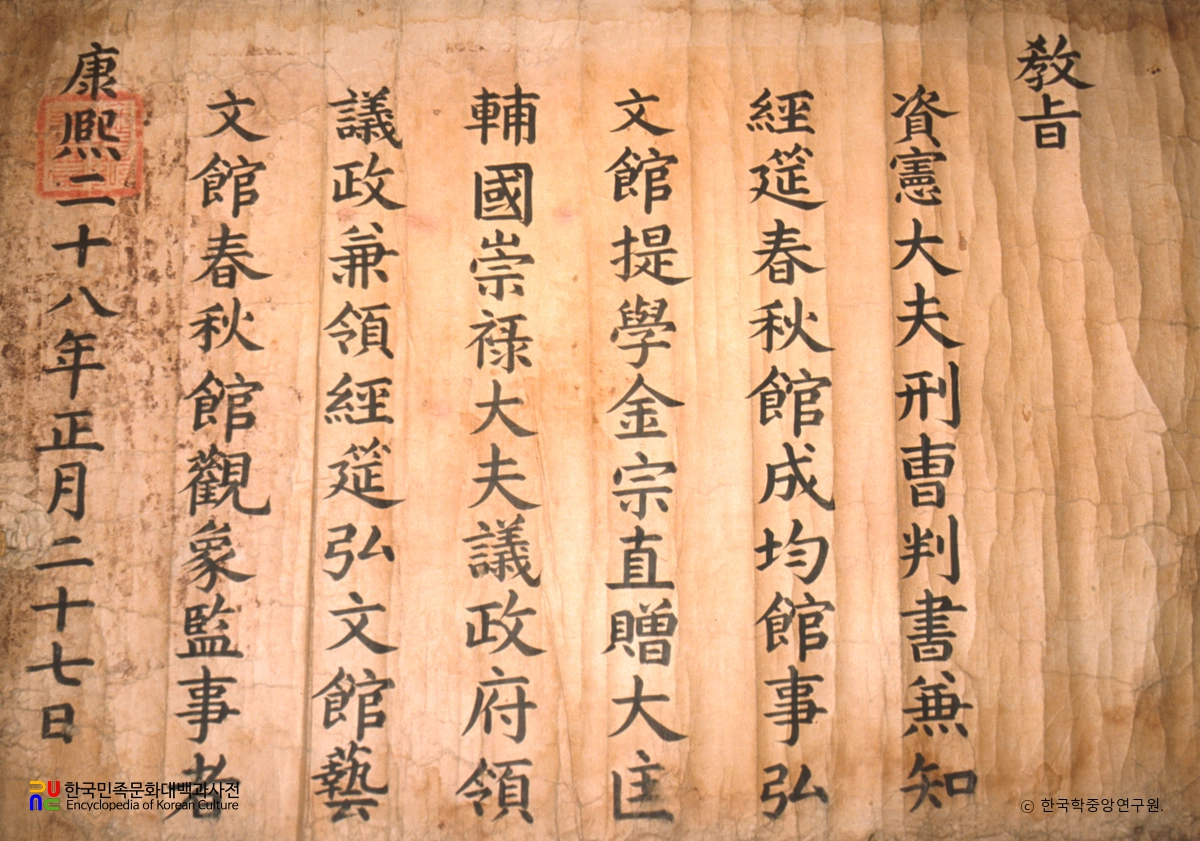 敎旨
資憲大夫刑曹判書兼知
經筵春秋館成均館事弘
文館提學金宗直贈大匡
輔國崇祿大夫議政府領
議政兼領經筵弘文館藝
文館春秋館觀象監事者
康熙二十八年正月二十七日
한국민족문화대백과사전
Encyclopedia of Korean Culture
ⓒ 한국학중앙연구원.